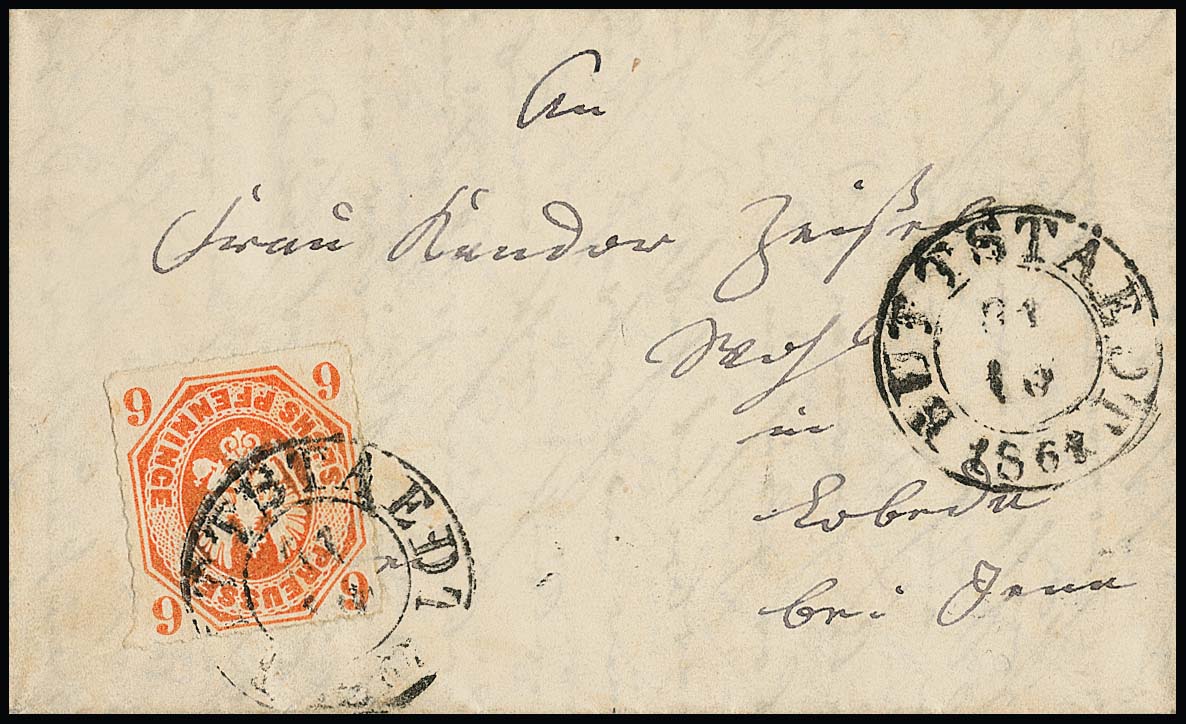 An
Frau Kandor Zeißel
Wohl
in
Lobeda
bei Jena
BUTTSTÄEDT
1861
6 6
PREUSSEN SECHS PFENNINGE
6 6
TSTAEDT